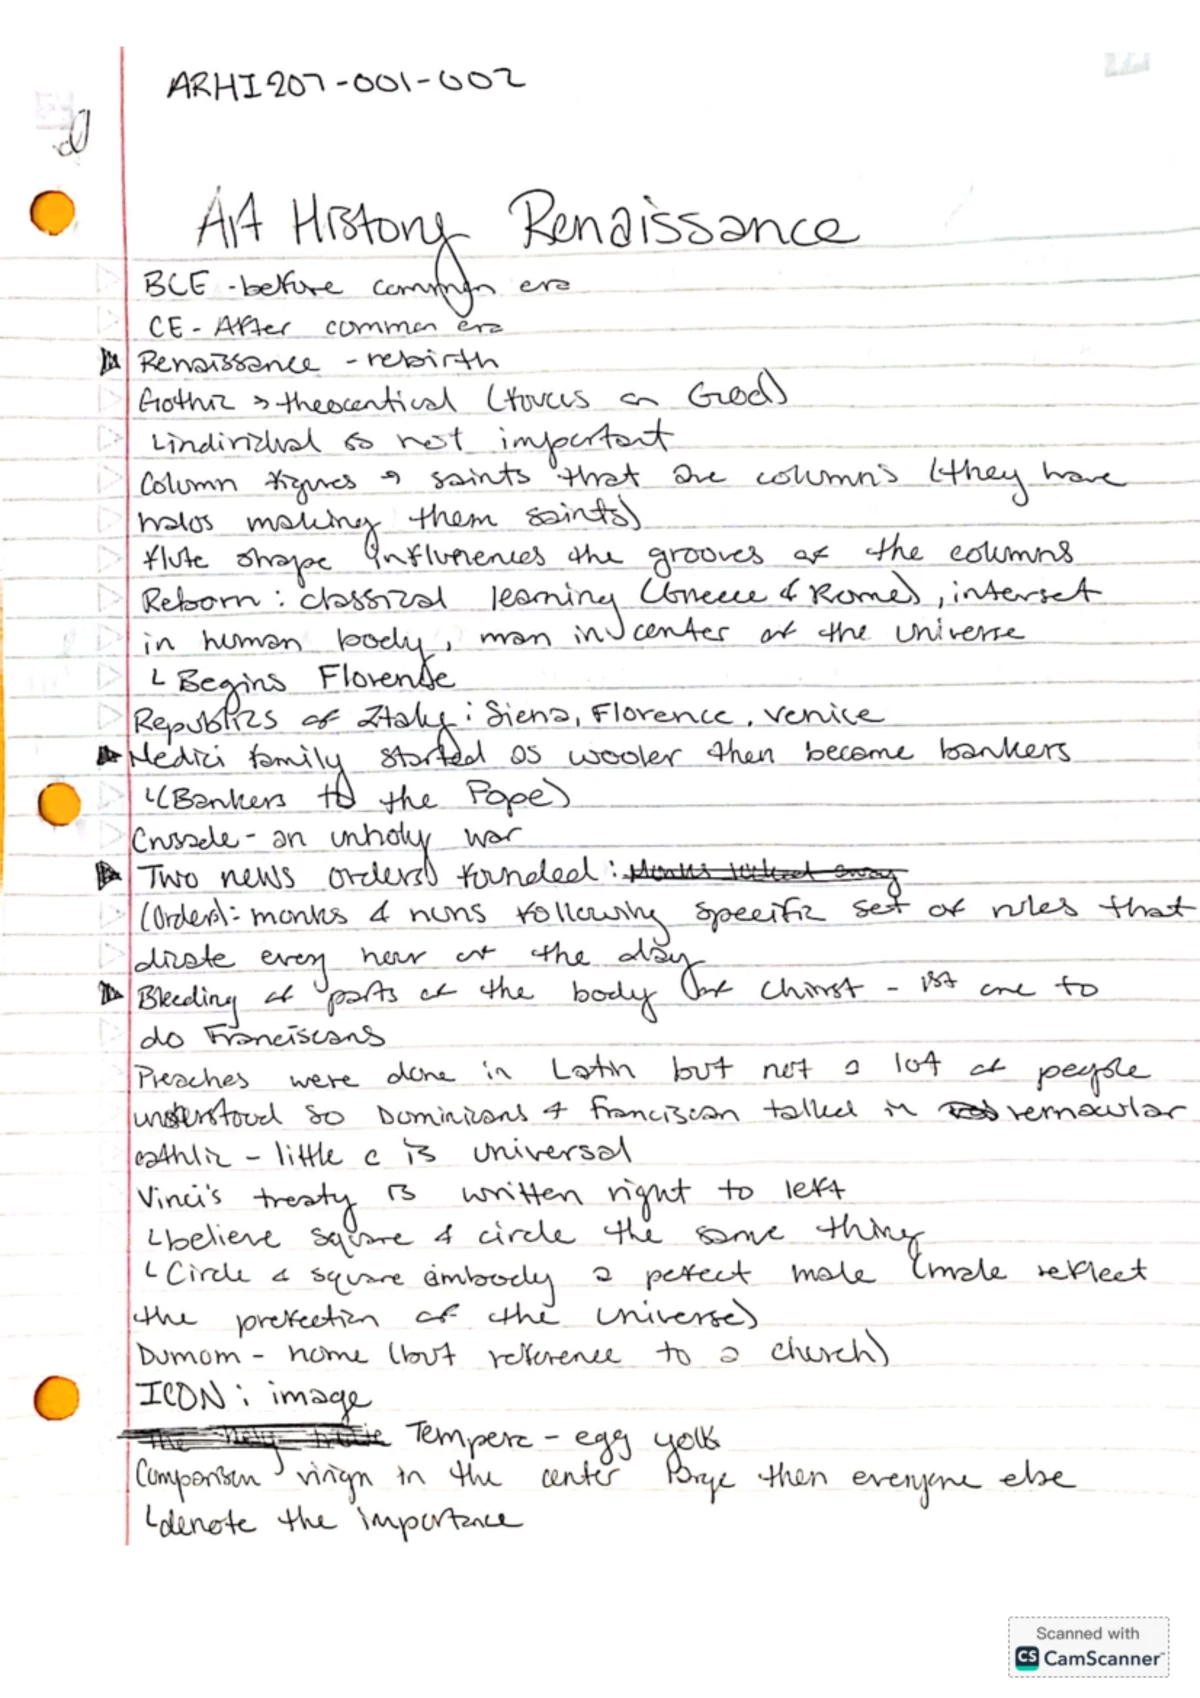 ARHI207-001-002
Art History Renaissance
BCE - before common era
CE - After common era
Renaissance - rebirth
Gothic → theocentical (focus on God)
↳ individual is not important
Column figures → saints that are columns (they have
halos making them saints)
flute shape influnences the grooves of the columns
Reborn : classical learning (Greece & Rome), interset
in human body, man in center of the universe
↳ Begins Florence
Republics of Italy : Siena, Florence, Venice
Medici family started as wooler then became bankers
↳ (Bankers to the Pope)
Crusade - an unholy war
Two news orders founded :
(Orders): monks & nuns following specific set of rules that
dicate every hour of the day
Bleeding of parts of the body of Chirst - 1st one to
do Franciscans
Preaches were done in Latin but not a lot of people
understood so Dominicans & Franciscan talked in vernacular
cathlic - little c is universal
Vinci's treaty is written right to left
↳ believe square & circle the same thing
↳ Circle & square embody a pefect male (male reflect
the prefection of the universe)
Dumom - home (but reference to a church)
ICON : image
Tempera - egg yolk
Comparison virign in the center large then everyone else
↳ denote the importance
Scanned with
CS CamScanner